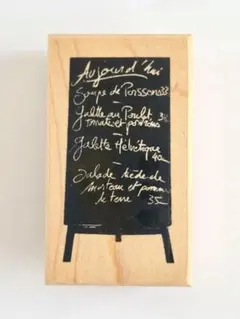 Aujourd'hui
Soupe de Poissons 28
Galette au Poulet 32
tomate et poivrons
Galette Helvétique
40
Salade tiède de
Morteau et pomme
de terre 35